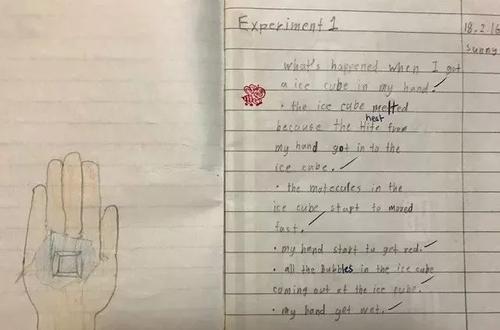 Experiment 1
18.2.16
sunny
what's happened when I got
a ice cube in my hand.
• the ice cube melted
heat
because the Hite from
my hand got in to the
ice cube.
• the molecules in the
ice cube start to moved
fast.
• my hand start to get red.
• all the bubbles in the ice cube
coming out of the ice cube.
• my hand got wet.